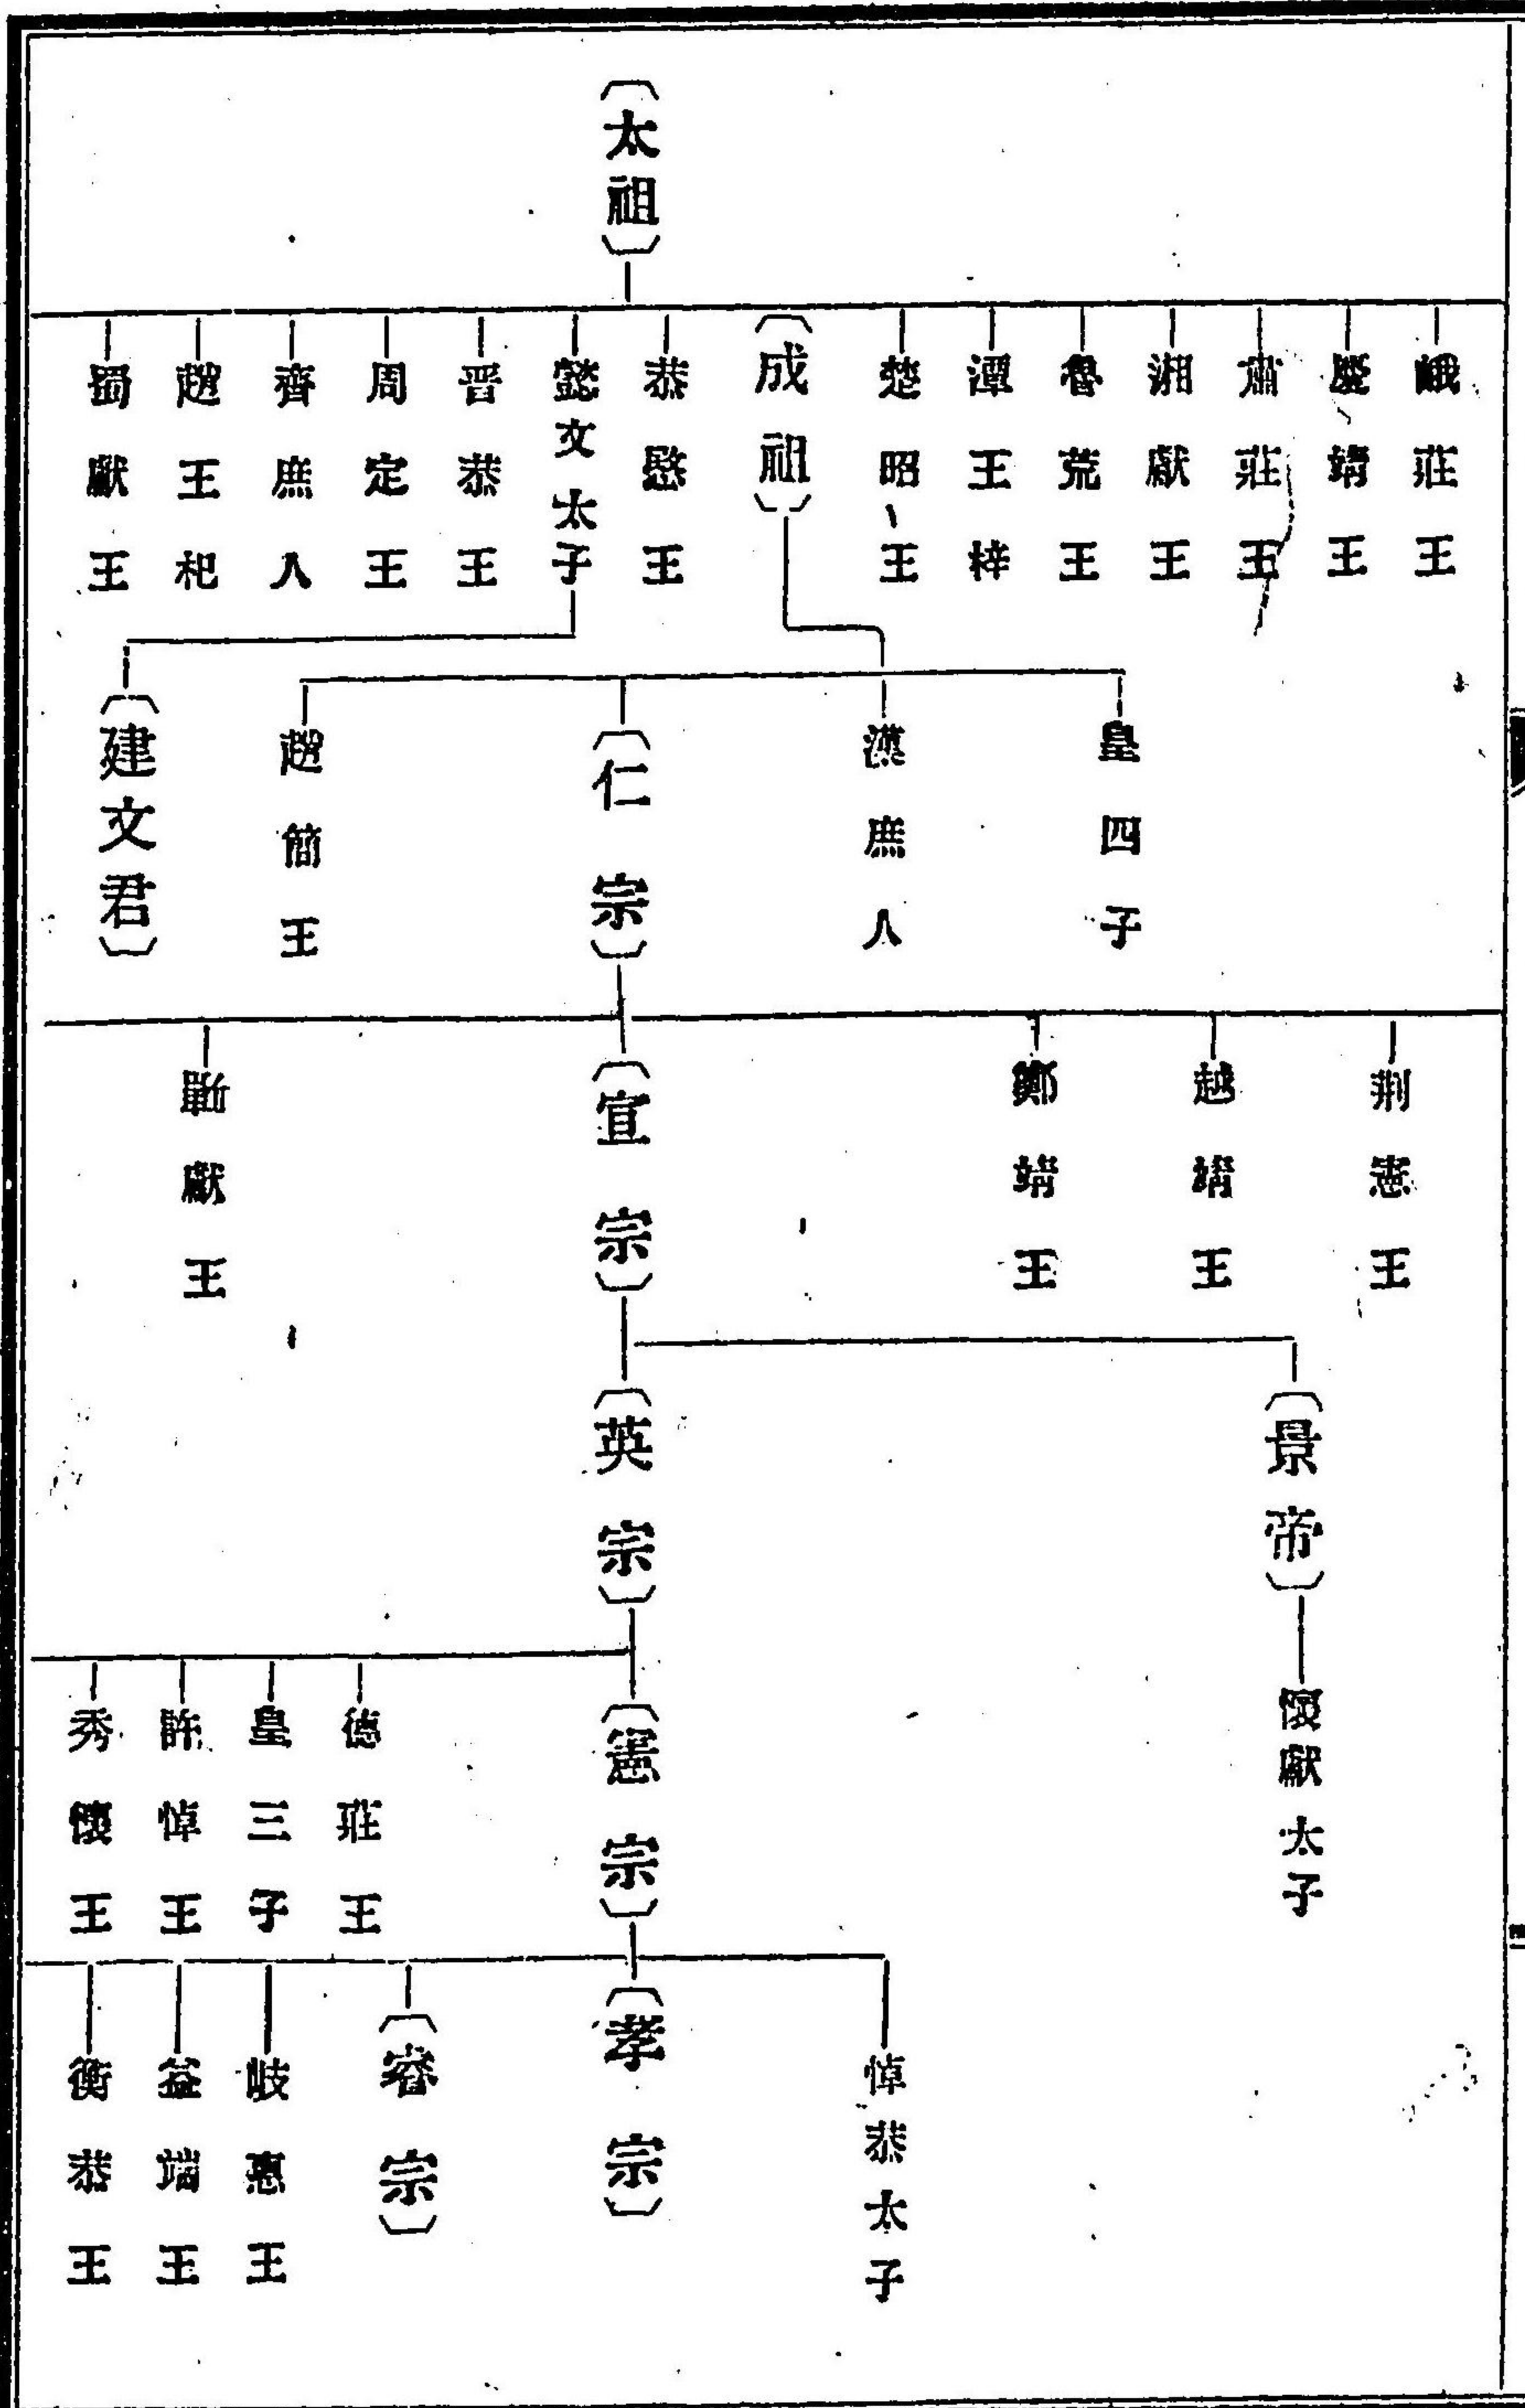 〔太祖〕
峨莊王
慶靖王
肅莊王
湘獻王
魯荒王
潭王梓
楚昭王
〔成祖〕
恭愍王
懿文太子
晋恭王
周定王
齊庶人
趙王杞
蜀獻王
皇四子
漢庶人
〔仁宗〕
趙簡王
〔建文君〕
荆憲王
越靖王
鄭靖王
〔宣宗〕
蘄獻王
〔景帝〕
〔英宗〕
懷獻太子
〔憲宗〕
德莊王
皇三子
許悼王
秀懷王
悼恭太子
〔孝宗〕
〔睿宗〕
岐惠王
益端王
衡恭王